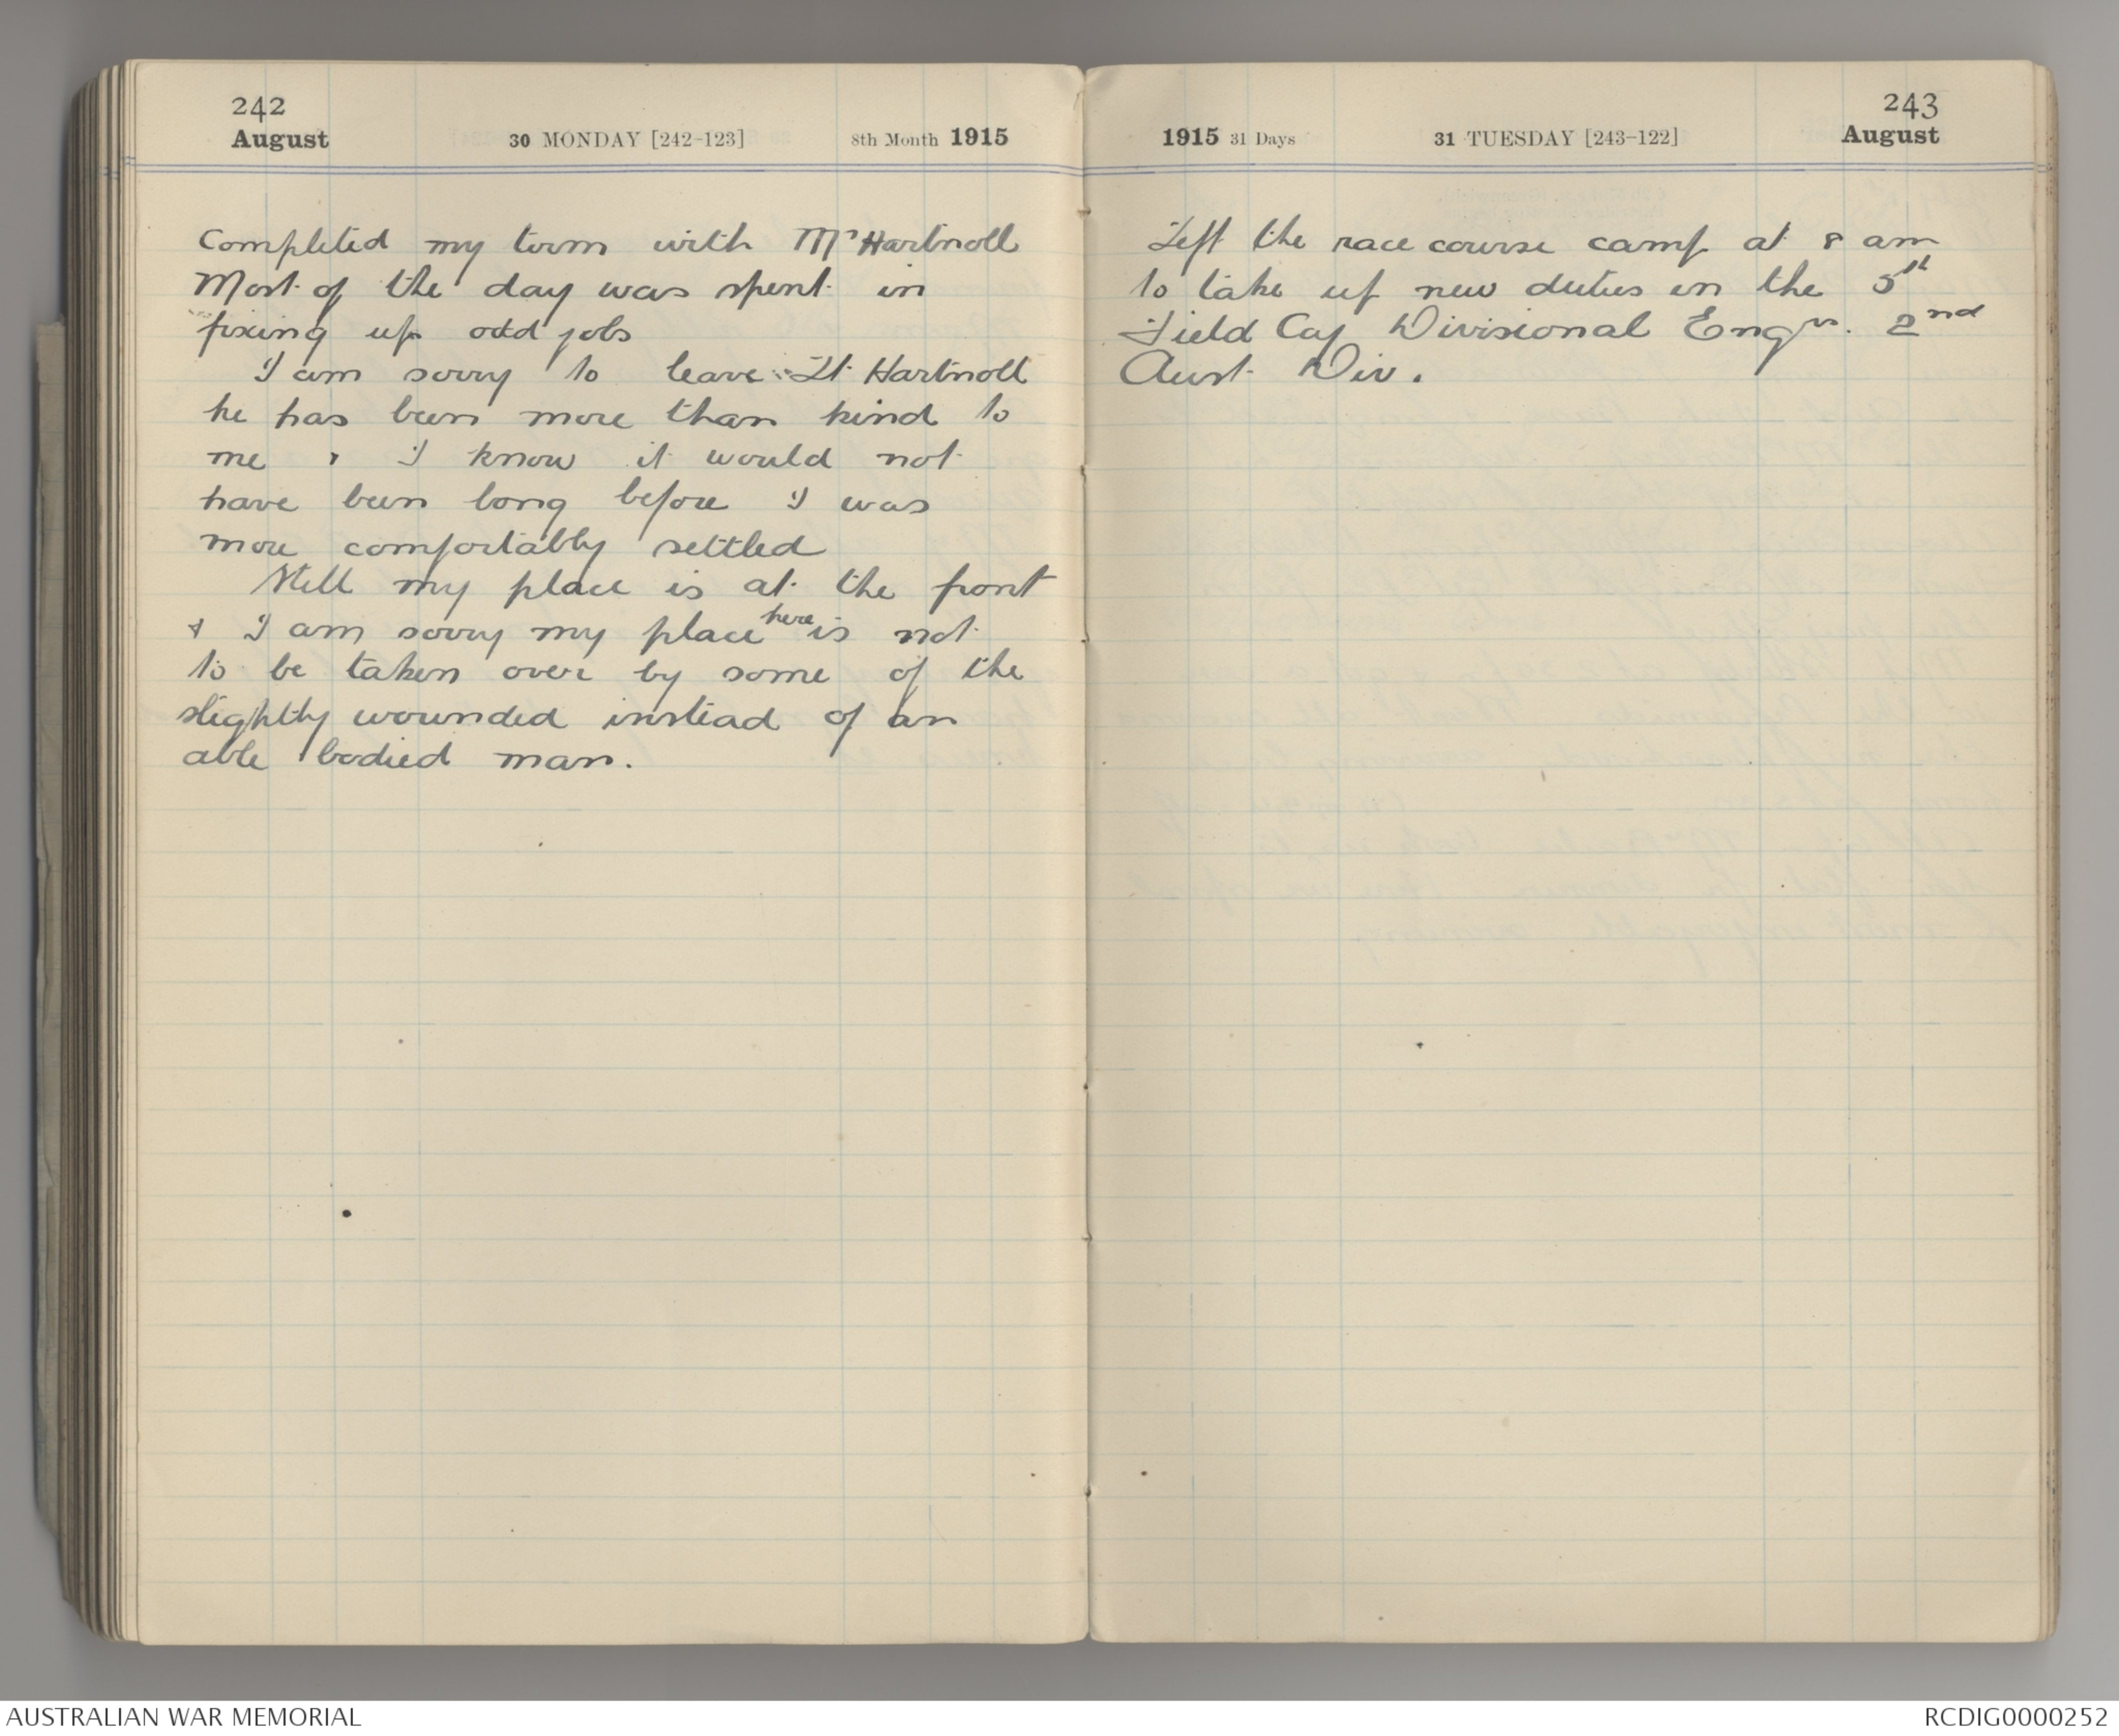 242
August
30 MONDAY [242-123]
8th Month 1915
Completed my term with Mr Hartnoll
Most of the day was spent in
fixing up odd jobs
I am sorry to leave Lt Hartnoll
he has been more than kind to
me & I know it would not
have been long before I was
more comfortably settled
Still my place is at the front
& I am sorry my place here is not
to be taken over by some of the
slightly wounded instead of an
able bodied man.
243
1915 31 Days
31 TUESDAY [243-122]
August
Left the race course camp at 8 am
to take up new duties in the 5th
Field Coy Divisional Engrs. 2nd
Aust Div.
AUSTRALIAN WAR MEMORIAL
RCDIG0000252